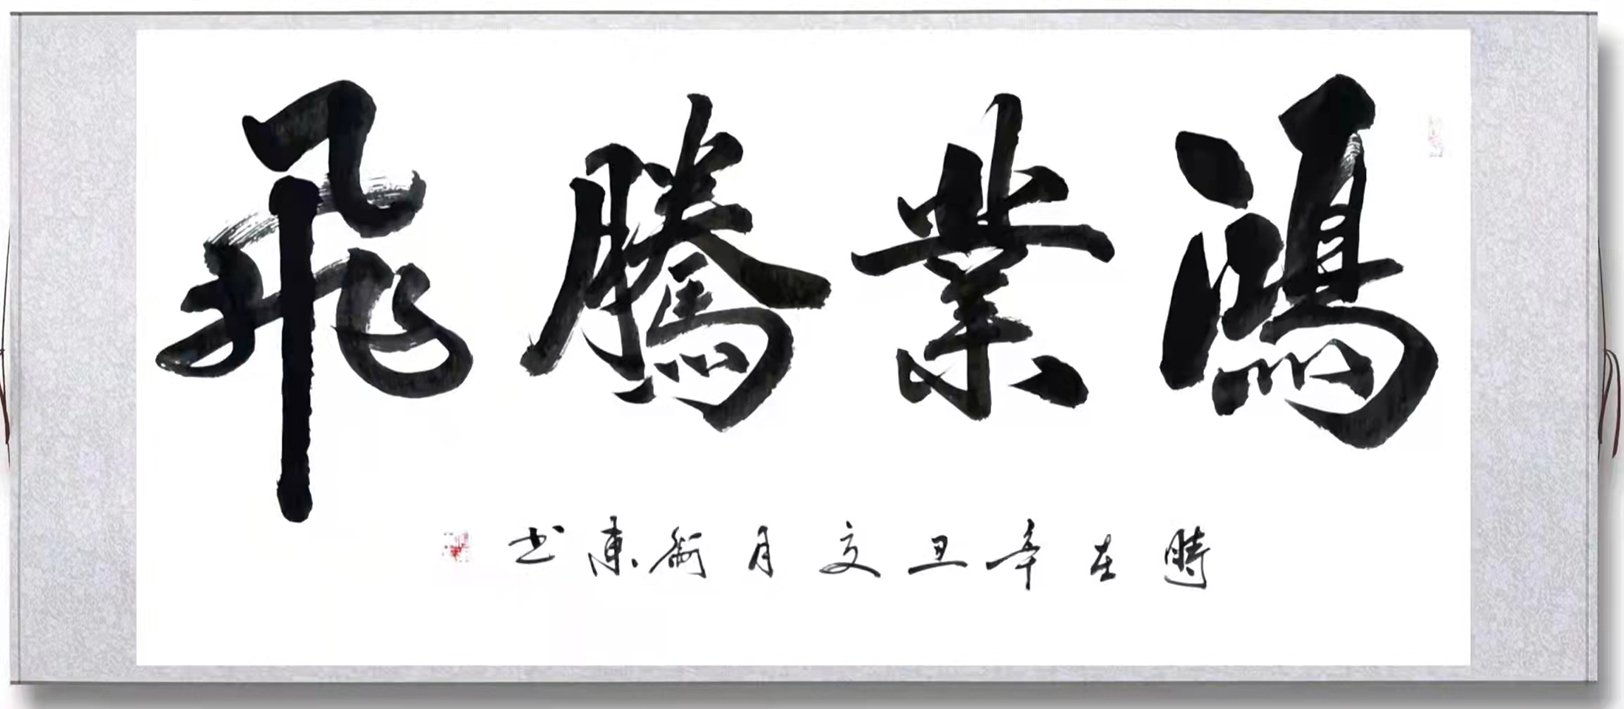 鴻業騰飛
時在辛丑文月衛東书